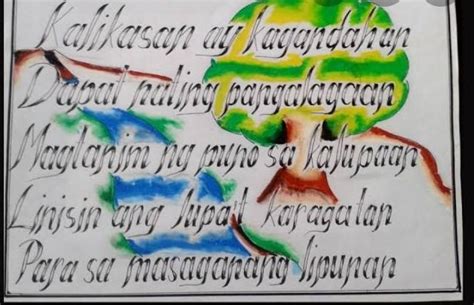 Kalikasan ay kagandahan
Dapat nating pangalagaan
Magtanim ng puno sa kalupaan
Linisin ang lupa't karagatan
Para sa masaganang lipunan